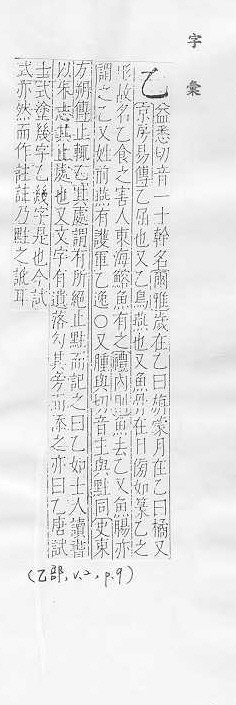 字彙
乙
益悉切音一十幹名爾雅歲在乙曰旃蒙月在乙曰橘又
京房易傳乙屈也又乙鳥燕也又魚骨在目傍如篆乙之
形故名乙食之害人東海鰫魚有之禮內則魚去乙又魚腸亦
謂之乙又姓前燕有護軍乙逸○又腫與切音主與點同史東
方朔傳止輒乙其處謂有所絕止點而記之曰乙如士人讀書
以朱志其止處也又文字有遺落勾其旁而添之亦曰乙唐試
士式塗幾字乙幾字是也今試
式亦然而作註誌乃點之訛耳
(乙部, v.2, p.9)